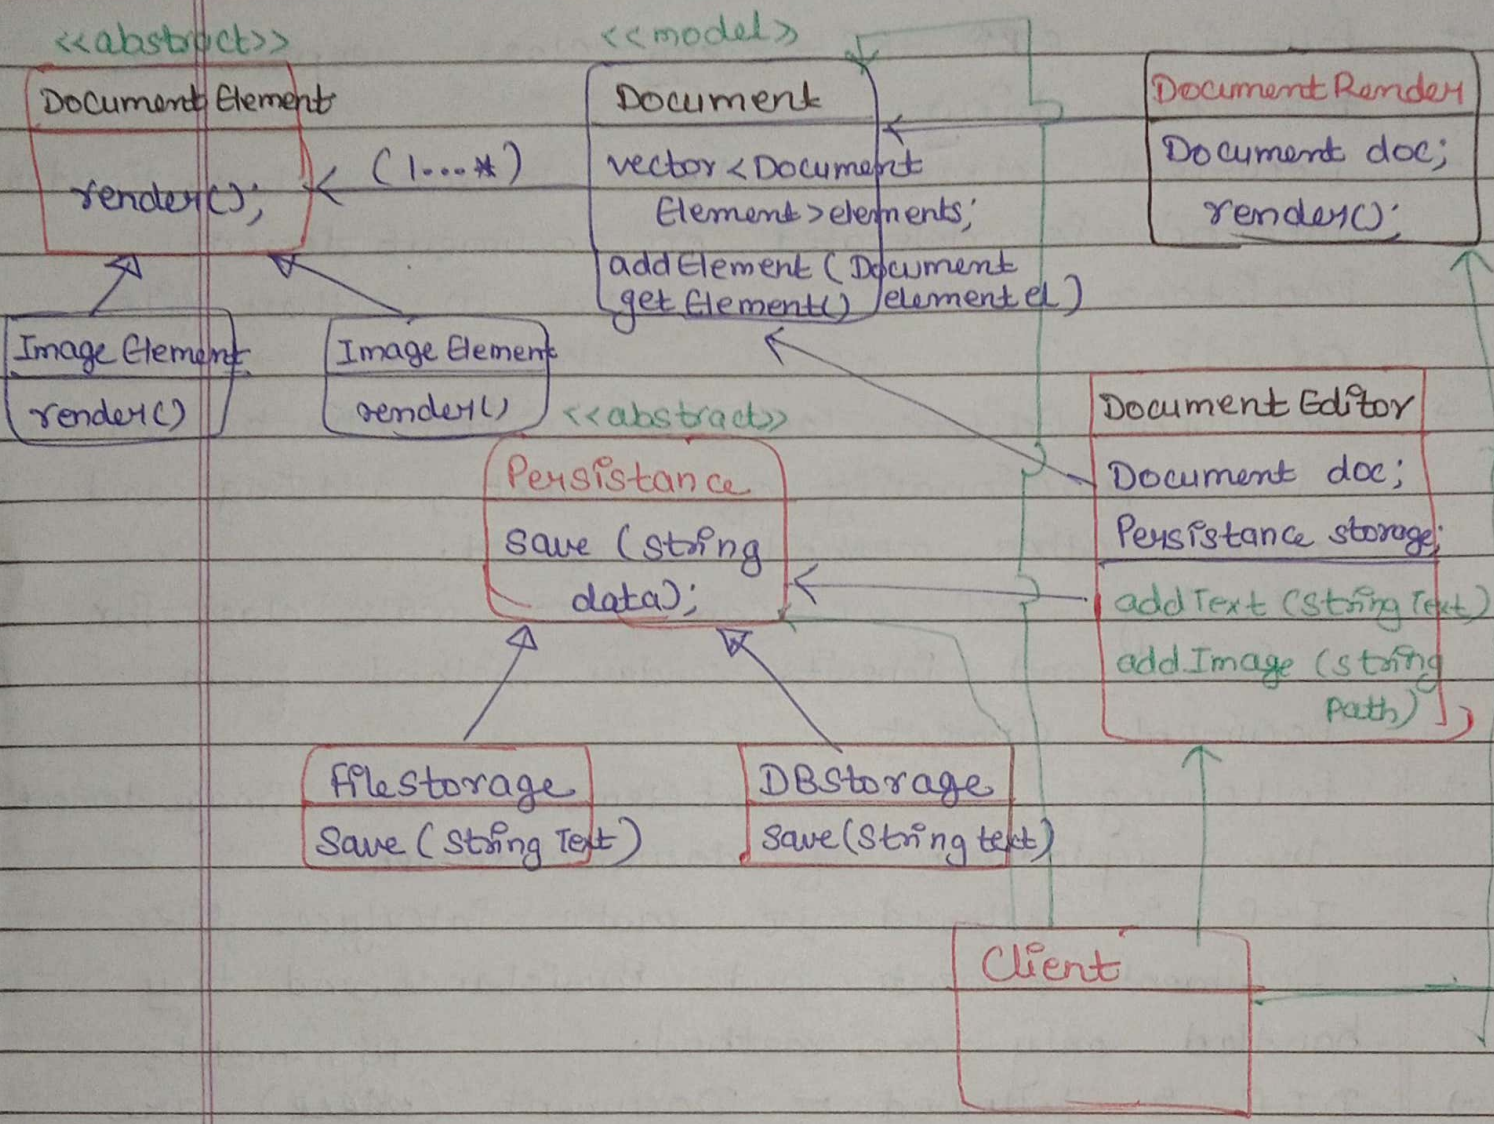 <<abstract>>
Document Element
render();
(1....*)
<<model>>
Document
vector<Document
Element>elements;
addElement (Document
elementel)
getElement()
DocumentRender
Document doc;
render();
Image Element
render()
Image Element
render()
<<abstract>>
Persistance
save (string
data);
Document Editor
Document doc;
Persistance storage;
addText (String Text)
addImage (string
path)
FileStorage
Save (String Text)
DBStorage
Save(String text)
Client